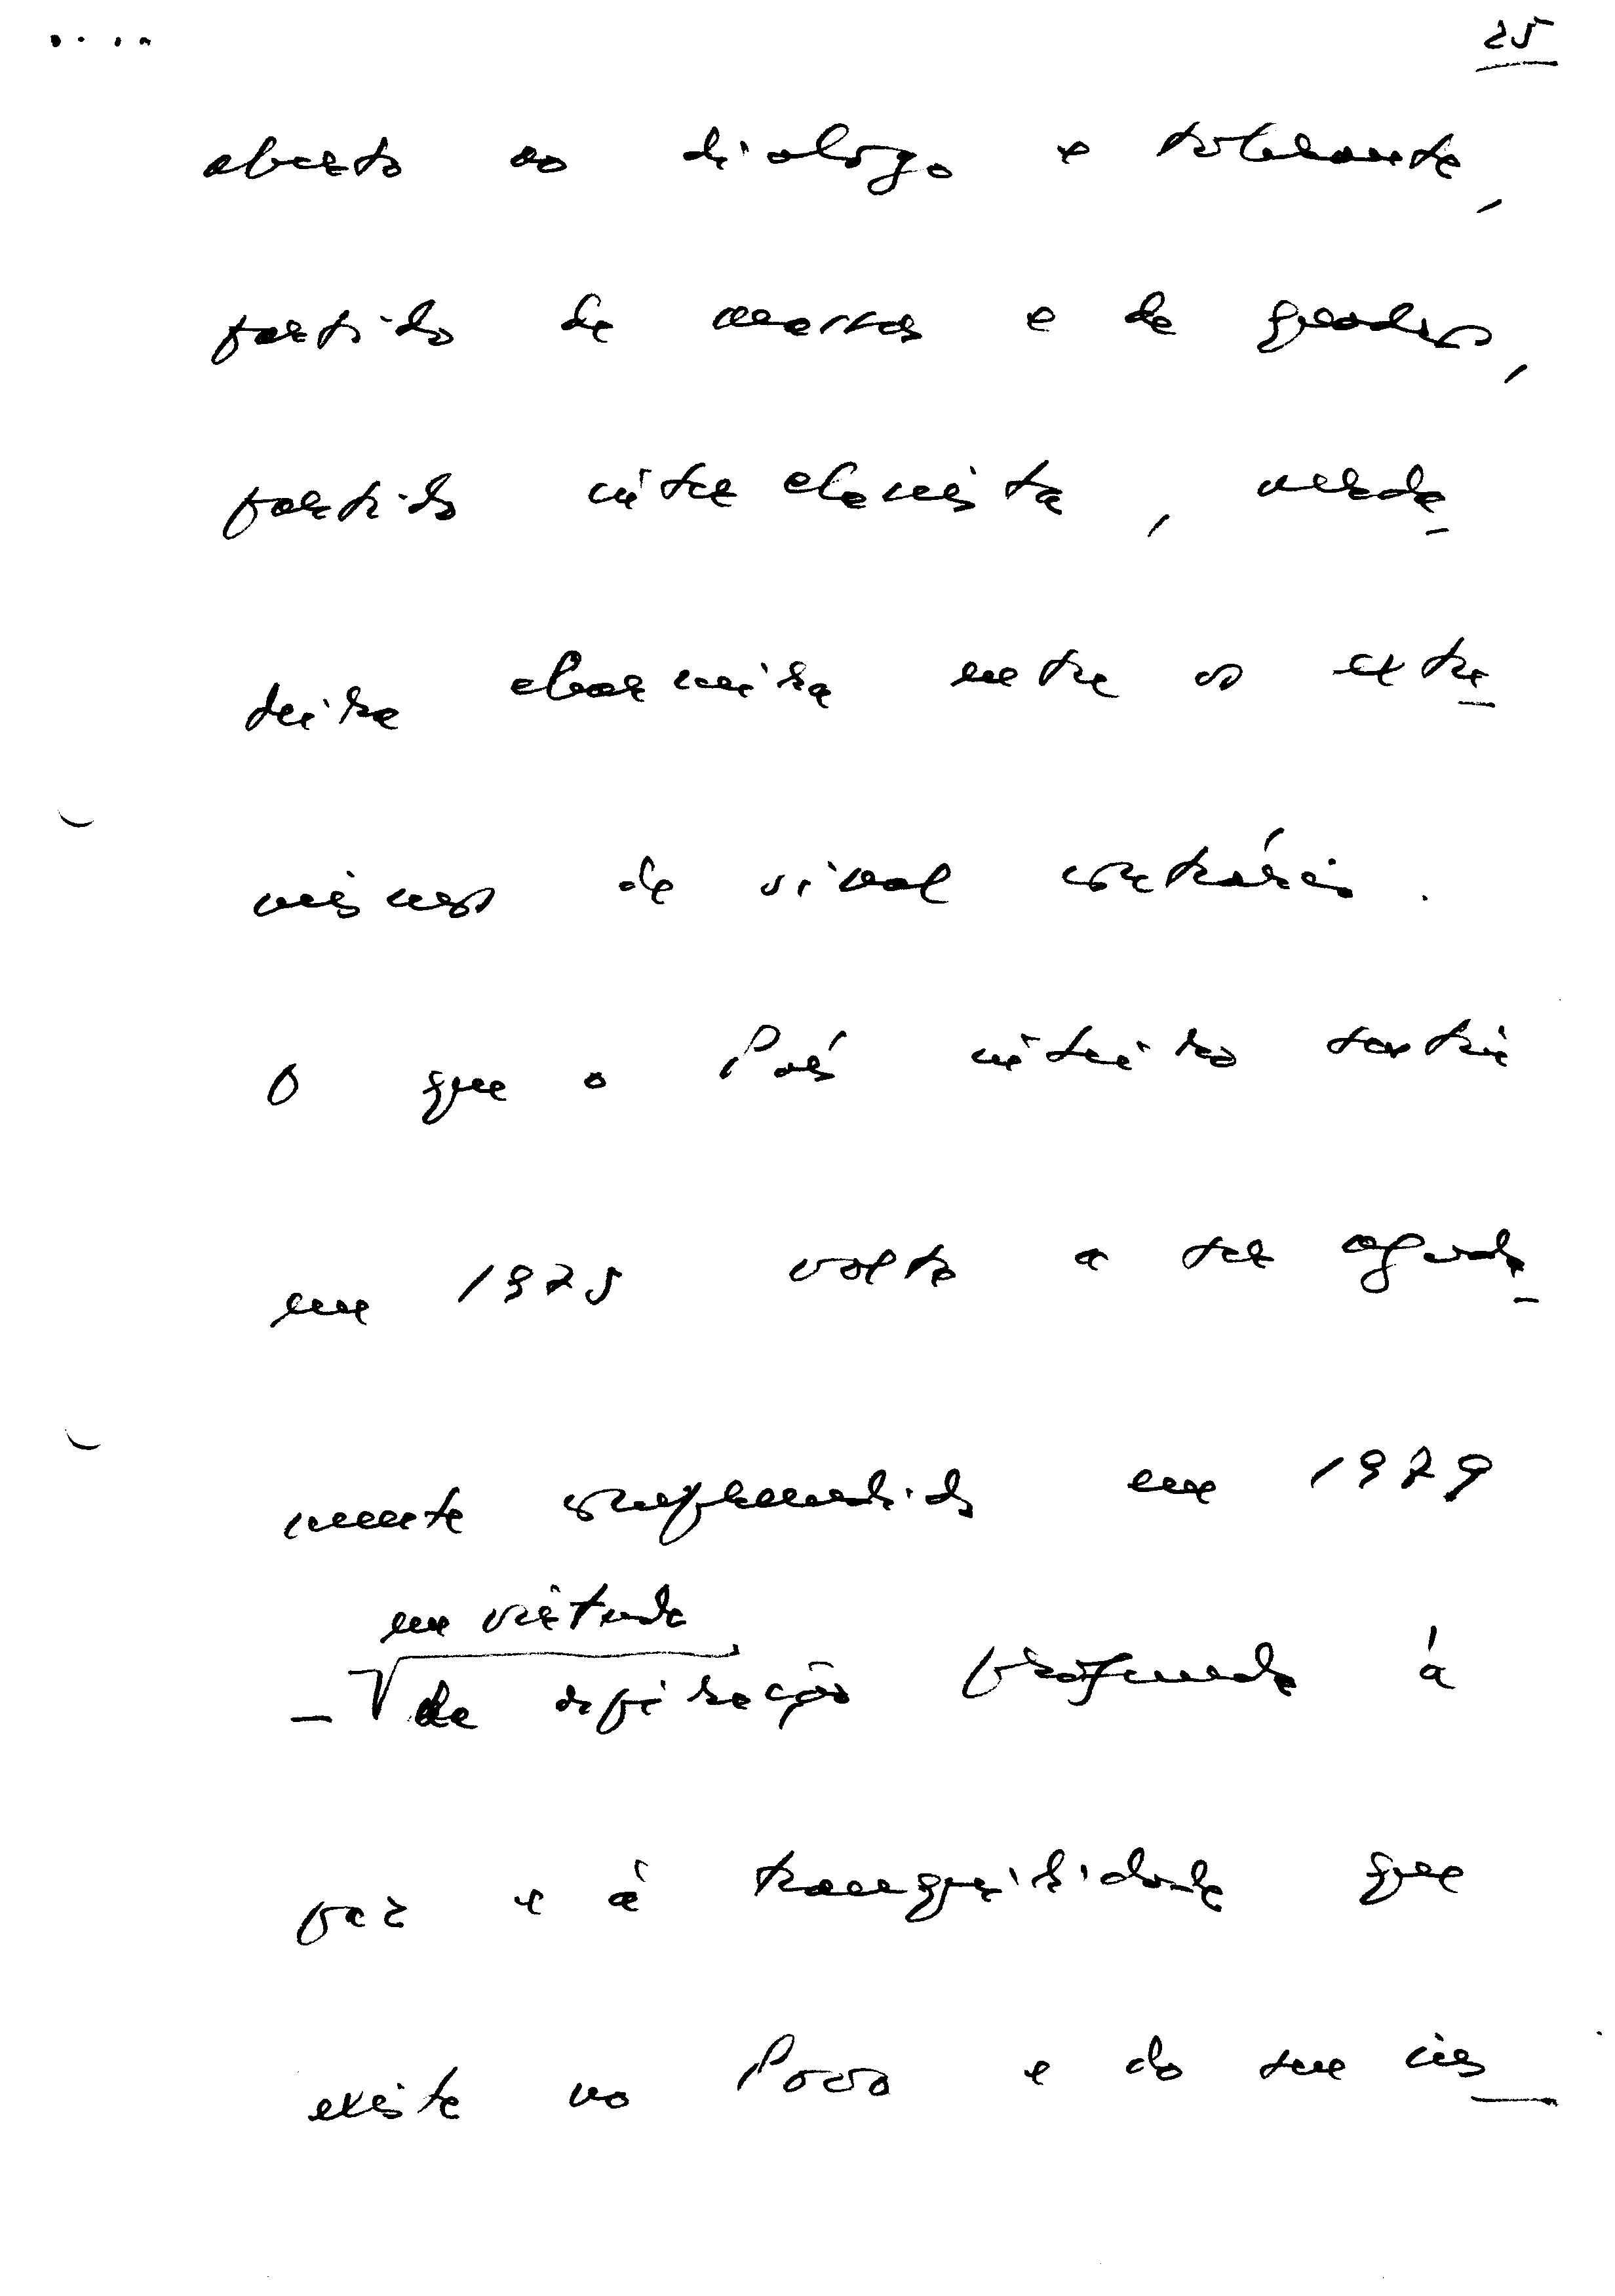 25
aberto ao dialogo e tolerante,
partido de massas e de quadros,
partido interclassista, verda-
deira charneira entre os extre-
mismos de sinal contrário.
O que o País inteiro sentiu
em 1975 volta a ser aguda-
mente compreendido em 1979
em virtude
- da aspiração profunda à
paz e à tranquilidade que
existe no Povo e do seu ins-